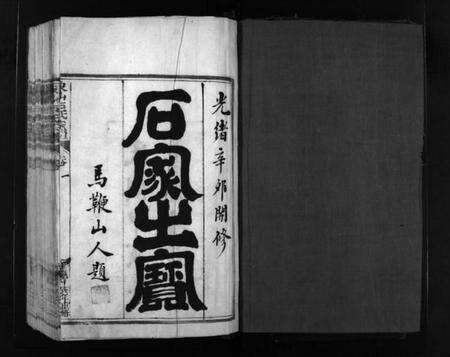 光緒辛卯開修
石家之寶
馬鞭山人題